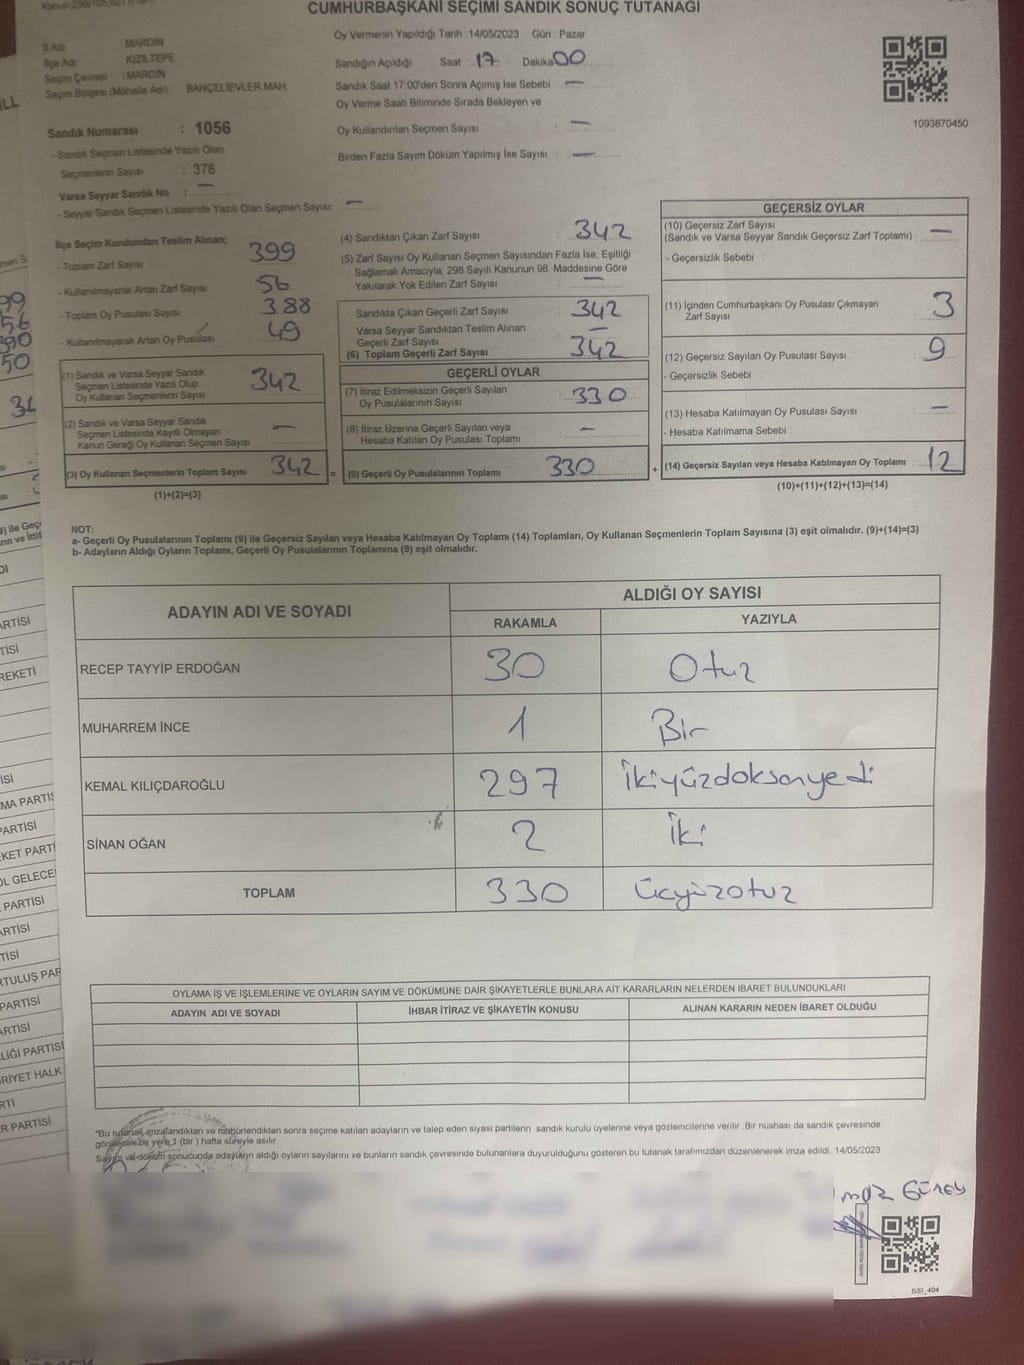 CUMHURBAŞKANI SEÇİMİ SANDIK SONUÇ TUTANAĞI
İl Adı : MARDİN
İlçe Adı : KIZILTEPE
Seçim Çevresi : MARDİN
Seçim Bölgesi (Mahalle Adı) BAHÇELİEVLER MAH.
Sandık Numarası : 1056
- Sandık Seçmen Listesinde Yazılı Olan
Seçmenlerin Sayısı : 378
Varsa Seyyar Sandık No : —
- Seyyar Sandık Seçmen Listesinde Yazılı Olan Seçmen Sayısı: —
Oy Vermenin Yapıldığı Tarih : 14/05/2023 Gün : Pazar
Sandığın Açıldığı Saat : 17 Dakika 00
Sandık Saat 17:00'den Sonra Açımış İse Sebebi —
Oy Verme Saati Bitiminde Sırada Bekleyen ve
Oy Kullandırılan Seçmen Sayısı —
Birden Fazla Sayım Döküm Yapılmış İse Sayısı —
1093870450
İlçe Seçim Kurulundan Teslim Alınan;
- Toplam Zarf Sayısı 399
- Kullanılmayarak Artan Zarf Sayısı 56
- Toplam Oy Pusulası Sayısı 388
- Kullanılmayarak Artan Oy Pusulası 49
(1) Sandık ve Varsa Seyyar Sandık
Seçmen Listesinde Yazılı Olup
Oy Kullanan Seçmenlerin Sayısı 342
(2) Sandık ve Varsa Seyyar Sandık
Seçmen Listesinde Kayıtlı Olmayan
Kanun Gereği Oy Kullanan Seçmen Sayısı —
(3) Oy Kullanan Seçmenlerin Toplam Sayısı 342 =
(1)+(2)=(3)
(4) Sandıktan Çıkan Zarf Sayısı 342
(5) Zarf Sayısı Oy Kullanan Seçmen Sayısından Fazla İse, Eşitliği
Sağlamak Amacıyla; 298 Sayılı Kanunun 98. Maddesine Göre
Yakılarak Yok Edilen Zarf Sayısı —
Sandıkta Çıkan Geçerli Zarf Sayısı 342
Varsa Seyyar Sandıktan Teslim Alınan
Geçerli Zarf Sayısı —
(6) Toplam Geçerli Zarf Sayısı 342
GEÇERLİ OYLAR
(7) İtiraz Edilmeksizin Geçerli Sayılan
Oy Pusulalarının Sayısı 330
(8) İtiraz Üzerine Geçerli Sayılan veya
Hesaba Katılan Oy Pusulası Toplamı —
(9) Geçerli Oy Pusulalarının Toplamı 330 +
GEÇERSİZ OYLAR
(10) Geçersiz Zarf Sayısı
(Sandık ve Varsa Seyyar Sandık Geçersiz Zarf Toplamı) : —
- Geçersizlik Sebebi :
(11) İçinden Cumhurbaşkanı Oy Pusulası Çıkmayan
Zarf Sayısı 3
(12) Geçersiz Sayılan Oy Pusulası Sayısı : 9
- Geçersizlik Sebebi :
(13) Hesaba Katılmayan Oy Pusulası Sayısı : —
- Hesaba Katılmama Sebebi :
(14) Geçersiz Sayılan veya Hesaba Katılmayan Oy Toplamı : 12
(10)+(11)+(12)+(13)=(14)
NOT:
a- Geçerli Oy Pusulasının Toplamı (9) ile Geçersiz Sayılan veya Hesaba Katılmayan Oy Toplamı (14) Toplamları, Oy Kullanan Seçmenlerin Toplam Sayısına (3) eşit olmalıdır. (9)+(14)=(3)
b- Adayların Aldığı Oyların Toplamı, Geçerli Oy Pusulalarının Toplamına (9) eşit olmalıdır.
ADAYIN ADI VE SOYADI
ALDIĞI OY SAYISI
RAKAMLA YAZIYLA
RECEP TAYYİP ERDOĞAN 30 Otuz
MUHARREM İNCE 1 Bir
KEMAL KILIÇDAROĞLU 297 İkiyüzdoksanyedi
SİNAN OĞAN 2 İki
TOPLAM 330 Üçyüzotuz
OYLAMA İŞ VE İŞLEMLERİNE VE OYLARIN SAYIM VE DÖKÜMÜNE DAİR ŞİKAYETLERLE BUNLARA AİT KARARLARIN NELERDEN İBARET BULUNDUKLARI
ADAYIN ADI VE SOYADI İHBAR İTİRAZ VE ŞİKAYETİN KONUSU ALINAN KARARIN NEDEN İBARET OLDUĞU
"Bu tutanak, imzalandıktan ve mühürlendikten sonra seçime katılan adayların ve talep eden siyasi partilerin sandık kurulu üyelerine veya gözlemcilerine verilir. Bir nüshası da sandık çevresinde
görülecek bir yere 1 (bir ) hafta süreyle asılır.
Sayım ve döküm sonucunda adayların aldığı oyların sayılarını ve bunların sandık çevresinde bulunanlara duyurulduğunu gösteren bu tutanak tarafımızdan düzenlenerek imza edildi. 14/05/2023
SSI_404